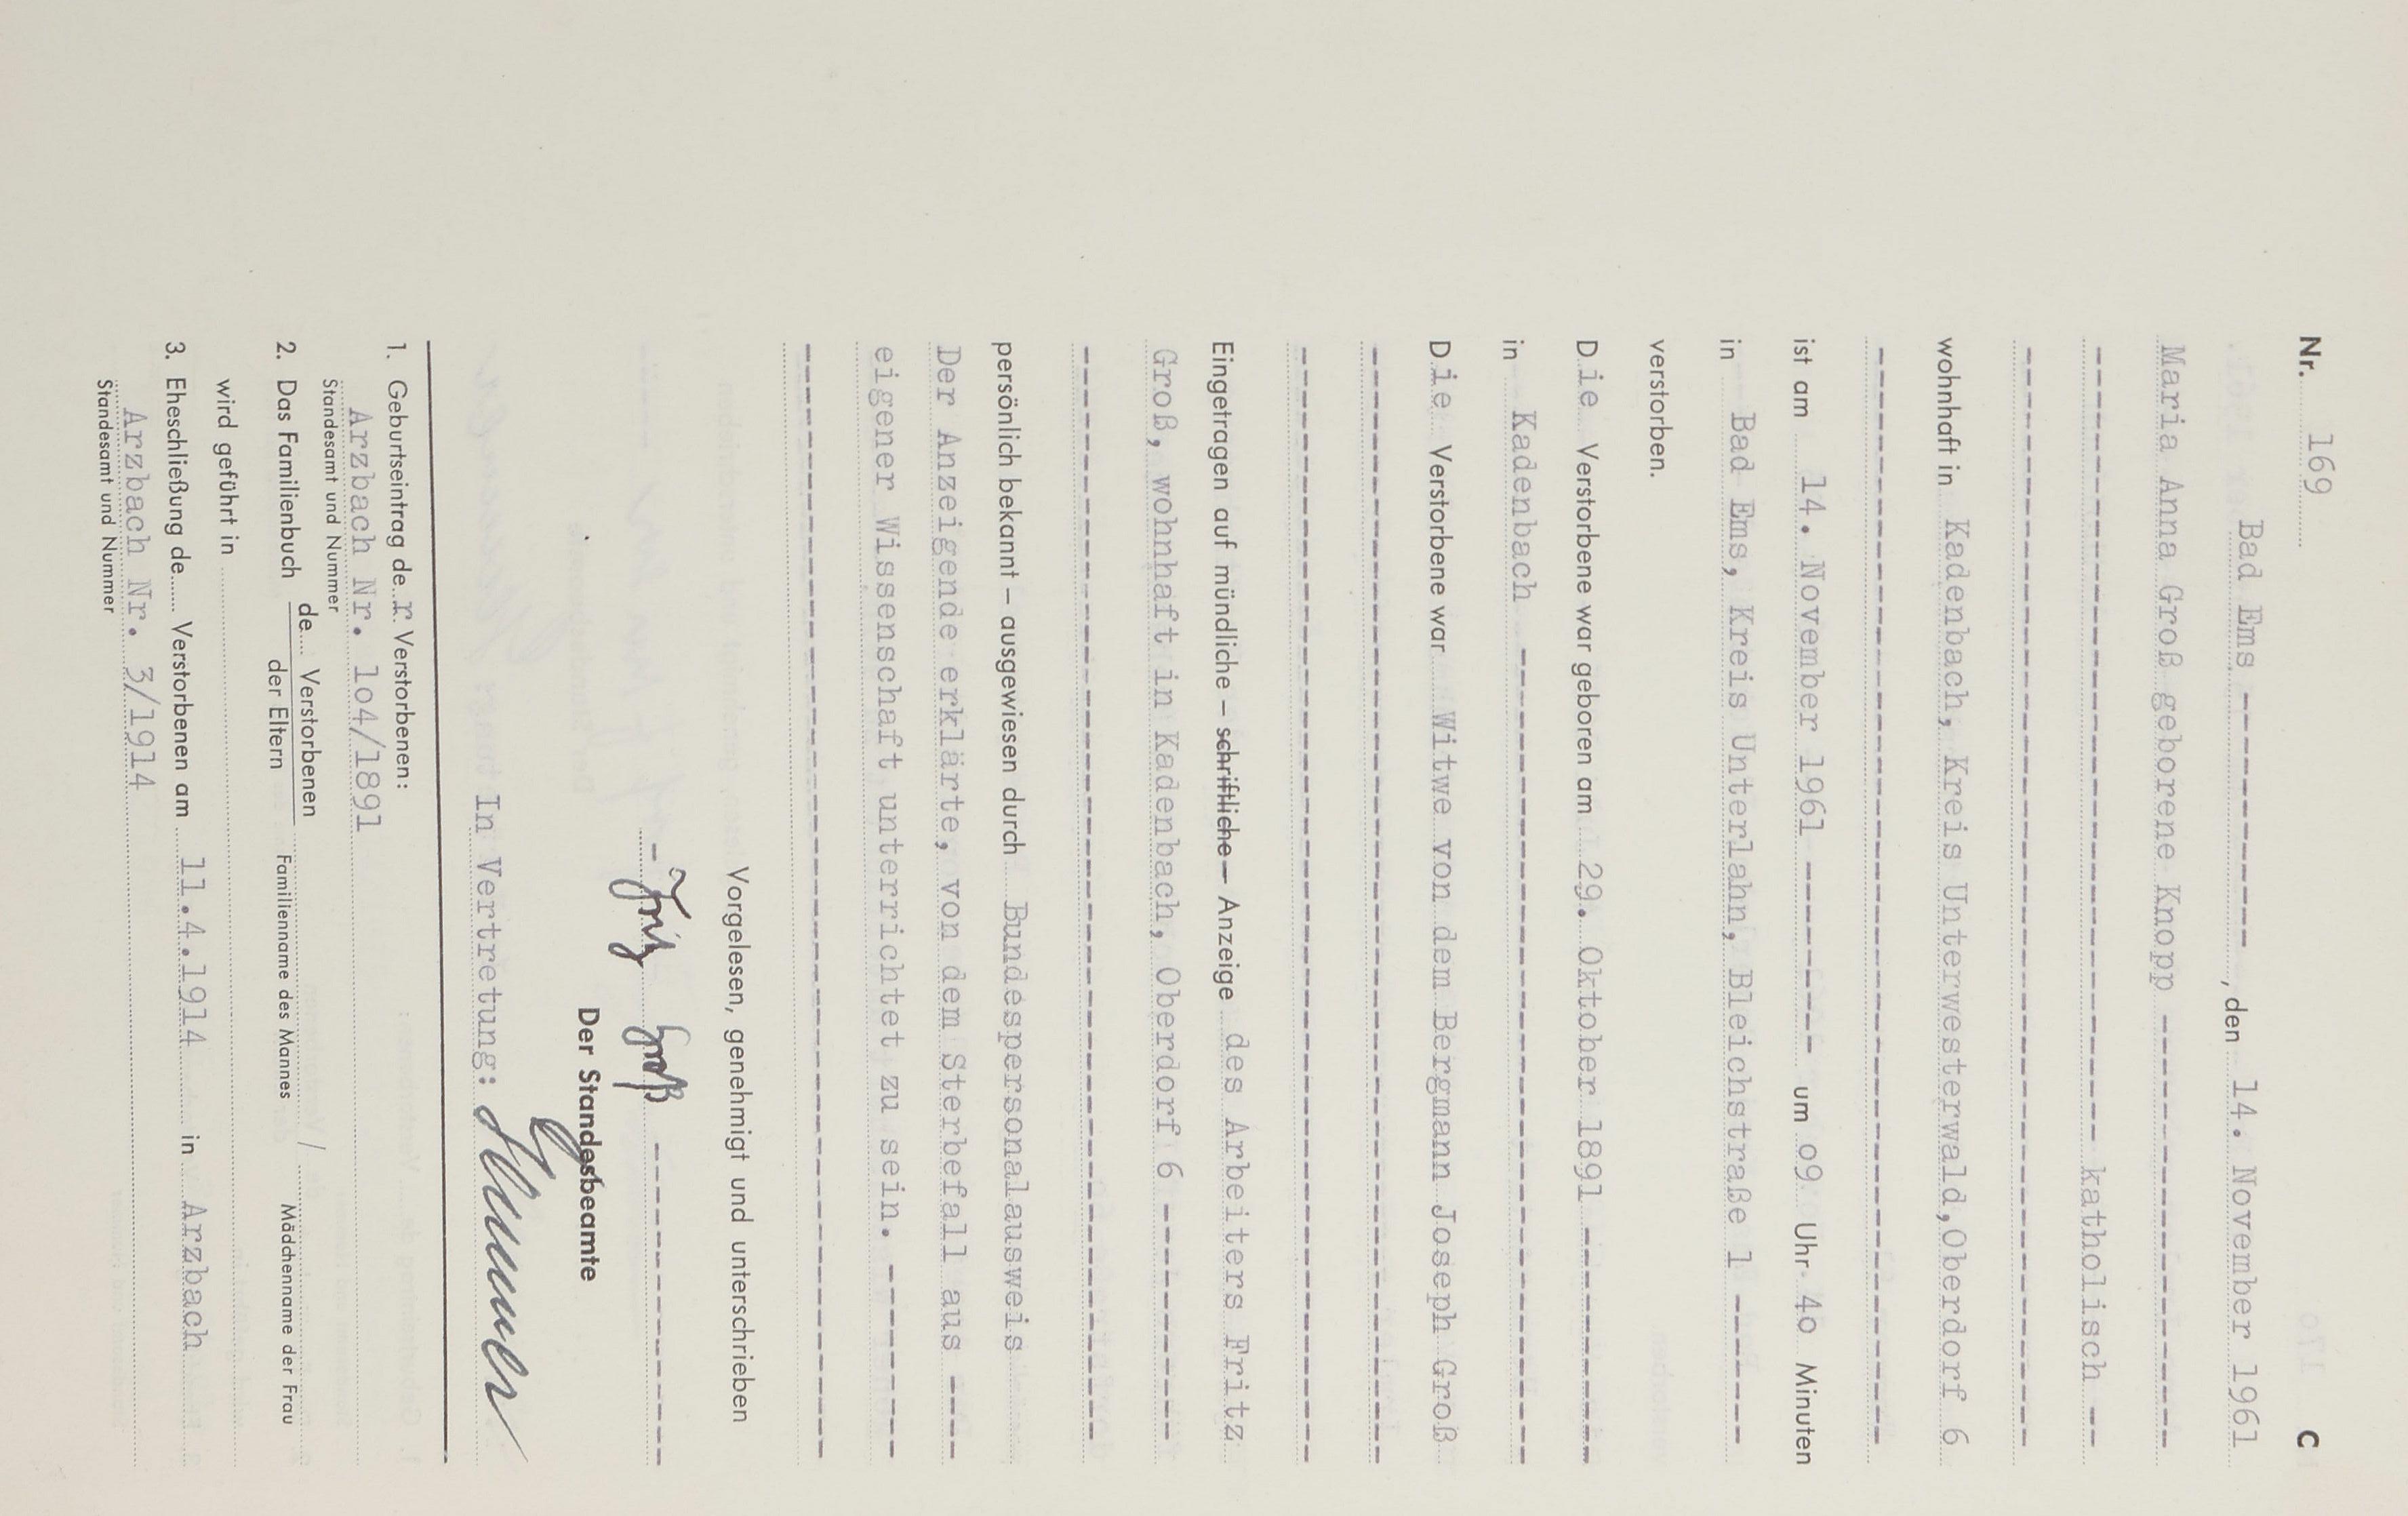 Nr. 169 C
Bad Ems ------------, den 14. November 1961
Maria Anna Groß geborene Knopp --------------------
------------------------------------ katholisch --
wohnhaft in Kadenbach, Kreis Unterwesterwald,Oberdorf 6
ist am 14. November 1961 --------- um o9 Uhr 4o Minuten
in Bad Ems, Kreis Unterlahn, Bleichstraße 1 -------
verstorben.
Die Verstorbene war geboren am 29. Oktober 1891 ----------
in Kadenbach ------------------------------
Die Verstorbene war Witwe von dem Bergmann Joseph Groß
Eingetragen auf mündliche – schriftliche – Anzeige des Arbeiters Fritz
Groß, wohnhaft in Kadenbach, Oberdorf 6 -----------
persönlich bekannt – ausgewiesen durch Bundespersonalausweis
Der Anzeigende erklärte, von dem Sterbefall aus ----
eigener Wissenschaft unterrichtet zu sein. ---------
Vorgelesen, genehmigt und unterschrieben
- Fritz Groß --------------
Der Standesbeamte
In Vertretung:
1. Geburtseintrag der Verstorbenen:
Arzbach Nr. 1o4/1891
Standesamt und Nummer
2. Das Familienbuch de... Verstorbenen / 
der Eltern Familienname des Mannes Mädchenname der Frau
wird geführt in
3. Eheschließung de...... Verstorbenen am 11.4.1914 in Arzbach
Arzbach Nr. 3/1914
Standesamt und Nummer